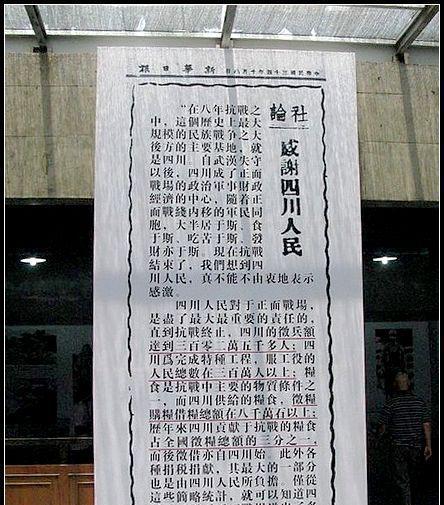 中華民國三十四年十月八日 新華日報
社論
感謝四川人民
“在八年抗戰之
中，這個歷史上最大
規模的民族戰爭之大
後方的主要基地，就
是四川。自武漢失守
以後，四川成了正面
戰場的政治軍事財政
經濟的中心，隨着正
面戰綫内移的軍民同
胞，大半居于斯、食
于斯、吃苦于斯、發
財亦于斯。現在抗戰
結束了，我們想到四
川人民，真不能不由衷地表示
感激。
四川人民對于正面戰場，
是盡了最大最重要的責任的，
直到抗戰終止，四川的徵兵額
達到三百零二萬五千多人；四
川爲完成特種工程，服工役的
人民總數在三百萬人以上；糧
食是抗戰中主要的物質條件之
一，而四川供給的糧食，徵糧
購糧借糧總額在八千萬石以上；
歷年來四川貢獻于抗戰的糧食
占全國徵糧總額的三分之一，
而後徵借亦自四川始。此外各
種捐税捐獻，其最大的一部分
也是由四川人民所負擔。僅從
這些簡略統計，就可以知道四